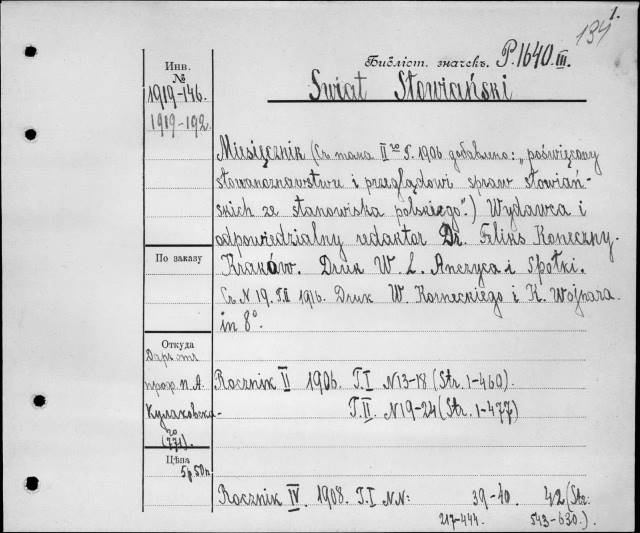 1.
134
Библіот. значекъ. P.1640.III.
Swiat Słowiański
Инв.
№
1919-146.
1919-192
Miesięcznik (Съ тома II го г. 1906 добавлено: „poświęcony
słowianoznawstwu i przeglądowi spraw słowiań-
skich ze stanowiska polskiego".) Wydawca i
odpowiedzialny redaktor Dr. Feliks Koneczny.
Kraków. Druk W. L. Anczyca i Spółki.
Съ N 19. T.II 1916. Druk W. Korneckiego i K. Wojnara.
in 8°.
По заказу
Откуда
Даръ отъ
проф. П. А.
Кулаковска-
го
(771).
Цѣна
5р.50к
Rocznik II 1906. T.I N13-18 (Str. 1-460).
T.II. N19-24 (Str. 1-477)
Rocznik IV. 1908. T.I N.N: 39-40. 42 (Str:
217-444. 543-630.).